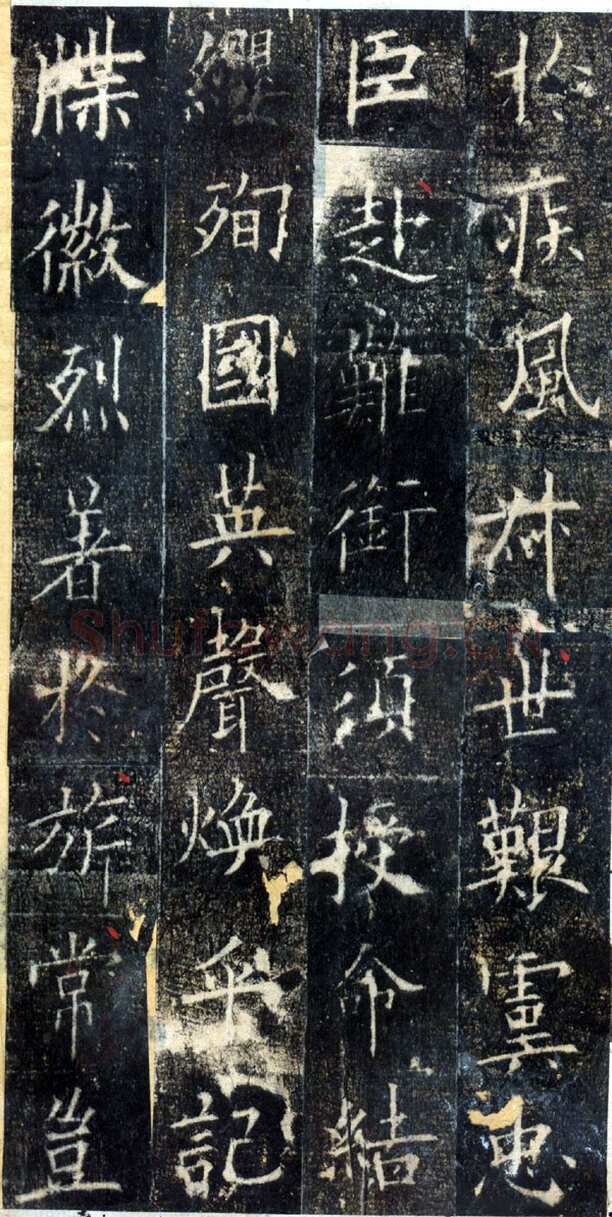 於疾風叔世艱虞忠
臣赴難銜須授命結
纓殉國英聲煥乎記
牒徽烈著於旂常豈
Shufawang.CN